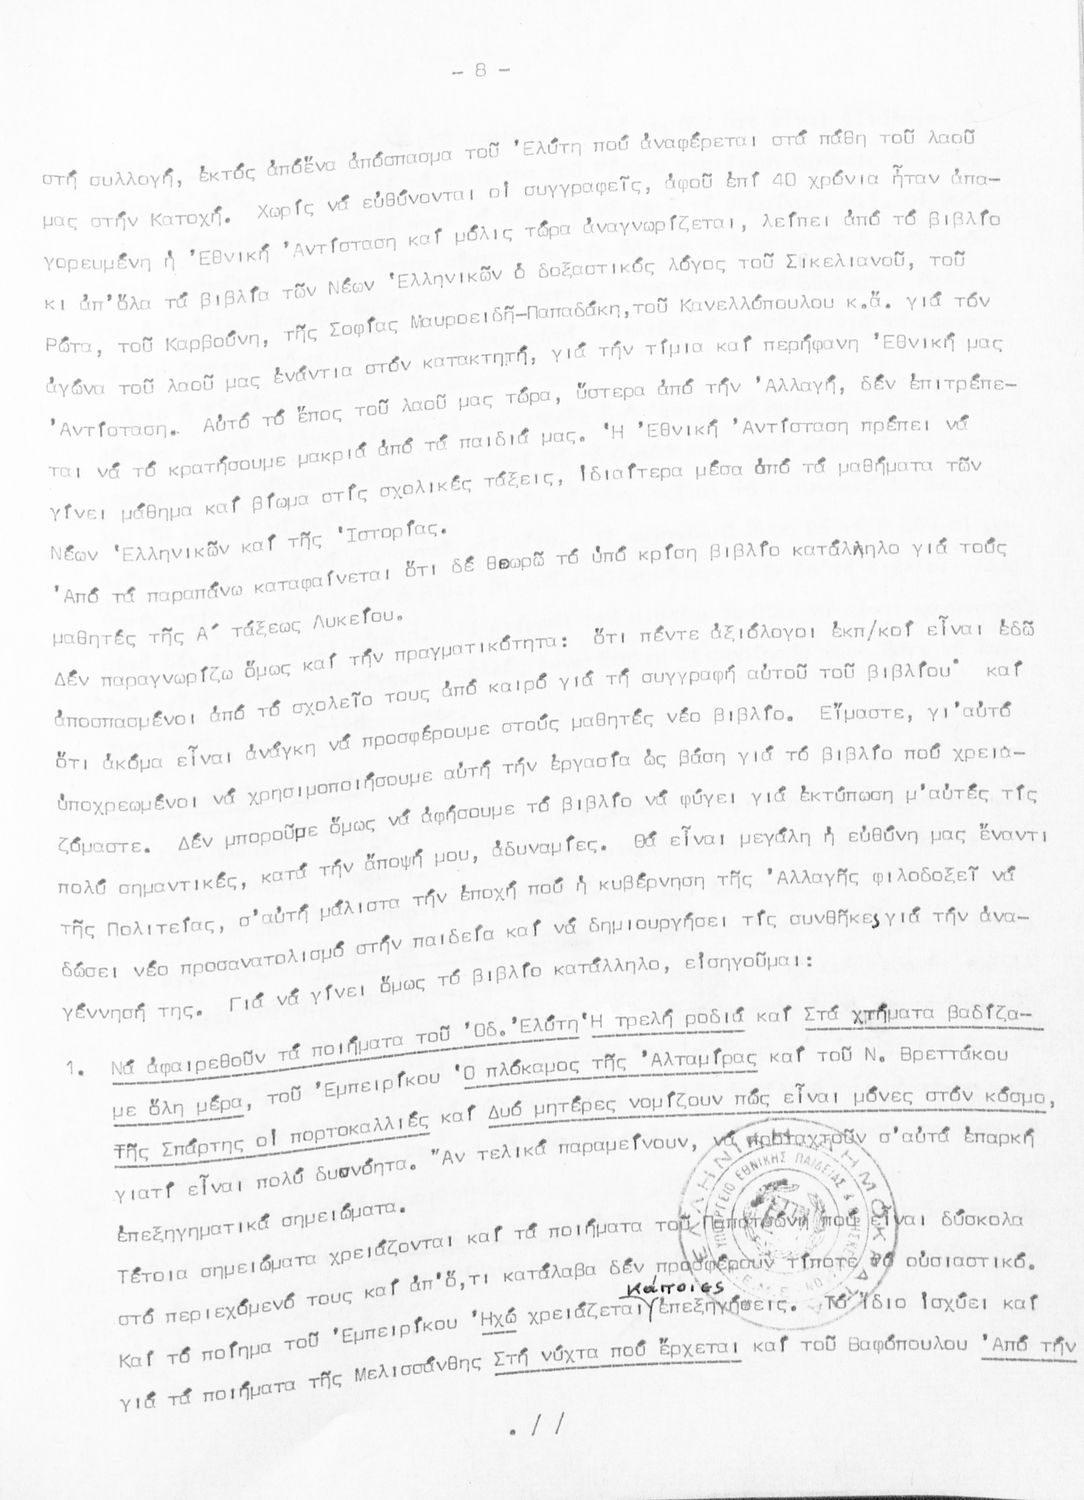 - 8 -
στή συλλογή, ἐκτός ἀπόἕνα ἀπόσπασμα τοῦ Ἐλύτη πού ἀναφέρεται στά πάθη τοῦ λαοῦ
μας στήν Κατοχή. Χωρίς νά εὐθύνονται οἱ συγγραφεῖς, ἀφοῦ ἐπί 40 χρόνια ἦταν ἀπα-
γορευμένη ἡ Ἐθνική Ἀντίσταση καί μόλις τώρα ἀναγνωρίζεται, λείπει ἀπό τό βιβλίο
κι ἀπ'ὅλα τά βιβλία τῶν Νέων Ἑλληνικῶν ὁ δοξαστικός λόγος τοῦ Σικελιανοῦ, τοῦ
Ρώτα, τοῦ Καρβούνη, τῆς Σοφίας Μαυροειδῆ-Παπαδάκη,τοῦ Κανελλόπουλου κ.ἄ. γιά τόν
ἀγώνα τοῦ λαοῦ μας ἐνάντια στόν κατακτητή, γιά τήν τίμια καί περήφανη Ἐθνική μας
Ἀντίσταση. Αὐτό τό ἔπος τοῦ λαοῦ μας τώρα, ὕστερα ἀπό τήν Ἀλλαγή, δέν ἐπιτρέπε-
ται νά τό κρατήσουμε μακριά ἀπό τά παιδιά μας. Ἡ Ἐθνική Ἀντίσταση πρέπει νά
γίνει μάθημα καί βίωμα στίς σχολικές τάξεις, ἰδιαίτερα μέσα ἀπό τά μαθήματα τῶν
Νέων Ἑλληνικῶν καί τῆς Ἱστορίας.
Ἀπό τά παραπάνω καταφαίνεται ὅτι δέ θεωρῶ τό ὑπό κρίση βιβλίο κατάλληλο γιά τούς
μαθητές τῆς Α´ τάξεως Λυκείου.
Δέν παραγνωρίζω ὅμως καί τήν πραγματικότητα: ὅτι πέντε ἀξιόλογοι ἐκπ/κοί εἶναι ἐδῶ
ἀποσπασμένοι ἀπό τό σχολεῖο τους ἀπό καιρό γιά τή συγγραφή αὐτοῦ τοῦ βιβλίου· καί
ὅτι ἀκόμα εἶναι ἀνάγκη νά προσφέρουμε στούς μαθητές νέο βιβλίο. Εἴμαστε, γι'αὐτό
ὑποχρεωμένοι νά χρησιμοποιήσουμε αὐτή τήν ἐργασία ὡς βάση γιά τό βιβλίο πού χρεια-
ζόμαστε. Δέν μποροῦμε ὅμως νά ἀφήσουμε τό βιβλίο νά φύγει γιά ἐκτύπωση μ'αὐτές τίς
πολύ σημαντικές, κατά τήν ἄποψή μου, ἀδυναμίες. Θά εἶναι μεγάλη ἡ εὐθύνη μας ἔναντι
τῆς Πολιτείας, σ'αὐτή μάλιστα τήν ἐποχή πού ἡ κυβέρνηση τῆς Ἀλλαγῆς φιλοδοξεῖ νά
δώσει νέο προσανατολισμό στήν παιδεία καί νά δημιουργήσει τίς συνθῆκες γιά τήν ἀνα-
γέννησή της. Γιά νά γίνει ὅμως τό βιβλίο κατάλληλο, εἰσηγοῦμαι:
1. Νά ἀφαιρεθοῦν τά ποιήματα τοῦ Ὀδ. Ἐλύτη Ἡ τρελή ροδιά καί Στά χτήματα βαδίζα-
με ὅλη μέρα, τοῦ Ἐμπειρίκου Ὁ πλόκαμος τῆς Ἀλταμίρας καί τοῦ Ν. Βρεττάκου
Τῆς Σπάρτης οἱ πορτοκαλλιές καί Δυό μητέρες νομίζουν πώς εἶναι μόνες στόν κόσμο,
γιατί εἶναι πολύ δυσνόητα. Ἄν τελικά παραμείνουν, νά προταχτοῦν σ'αὐτά ἐπαρκή
ἐπεξηγηματικά σημειώματα.
Τέτοια σημειώματα χρειάζονται καί τά ποιήματα τοῦ Παπατσώνη πού εἶναι δύσκολα
στό περιεχόμενό τους καί ἀπ'ὅ,τι κατάλαβα δέν προσφέρουν τίποτε τό οὐσιαστικό.
Καί τό ποίημα τοῦ Ἐμπειρίκου Ἠχώ χρειάζεται κάποιες ἐπεξηγήσεις. Τό ἴδιο ἰσχύει καί
γιά τά ποιήματα τῆς Μελισσάνθης Στή νύχτα πού ἔρχεται καί τοῦ Βαφόπουλου Ἀπό τήν
.//
ΕΛΛΗΝΙΚΗ ΔΗΜΟΚΡΑΤΙΑ
ΥΠΟΥΡΓΕΙΟ ΕΘΝΙΚΗΣ ΠΑΙΔΕΙΑΣ &